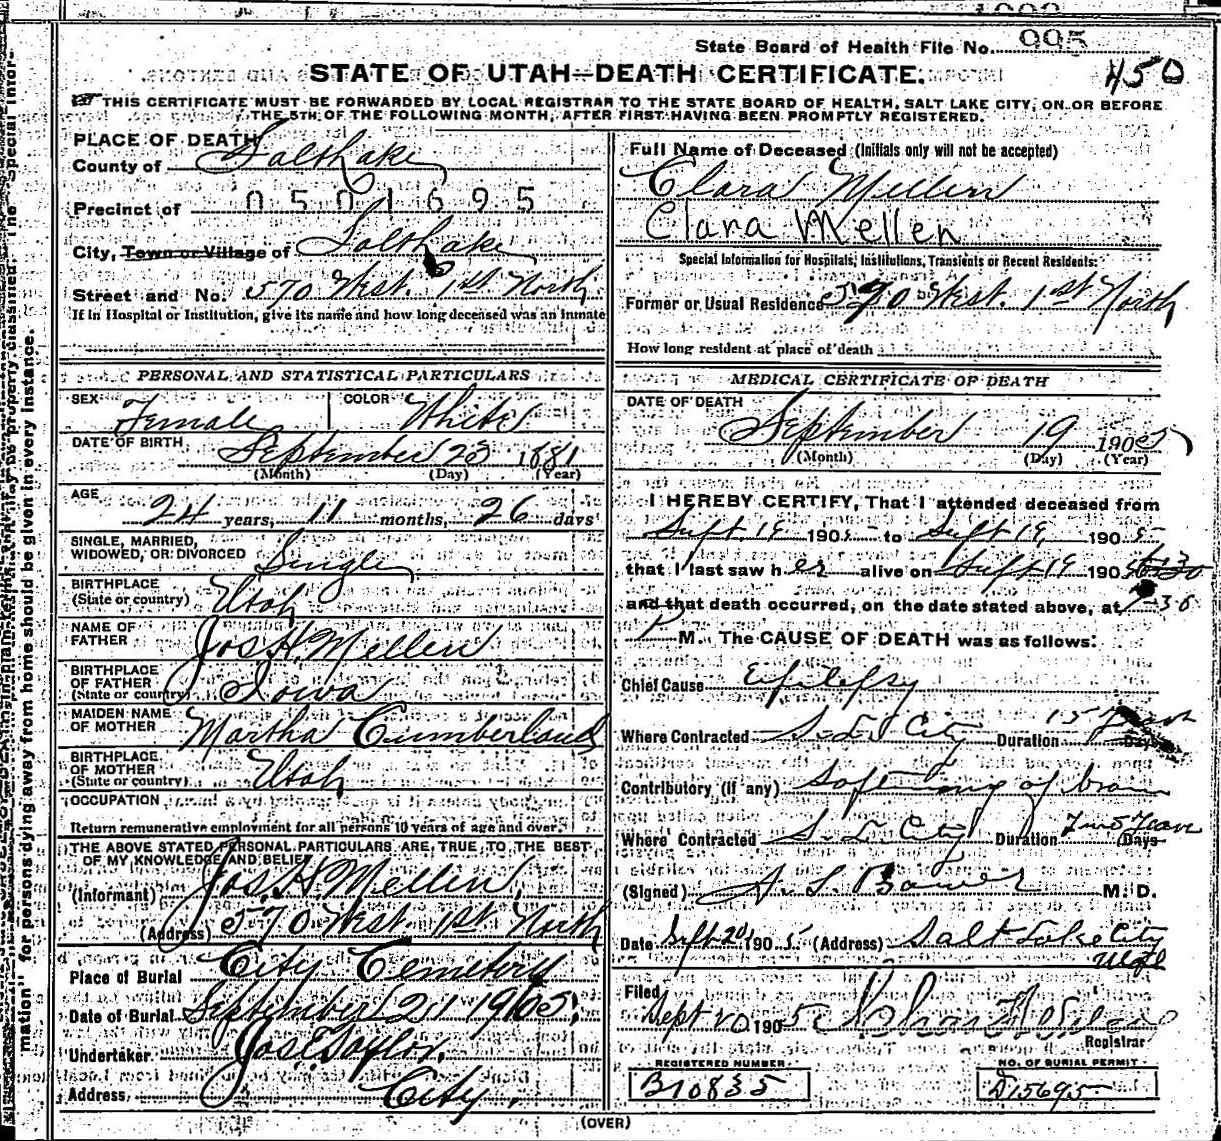 State Board of Health File No. 995
450
STATE OF UTAH—DEATH CERTIFICATE.
THIS CERTIFICATE MUST BE FORWARDED BY LOCAL REGISTRAR TO THE STATE BOARD OF HEALTH, SALT LAKE CITY, ON OR BEFORE
THE 5TH OF THE FOLLOWING MONTH, AFTER FIRST HAVING BEEN PROMPTLY REGISTERED.
PLACE OF DEATH
County of Salt Lake
Precinct of 0501695
City, Town or Village of Salt Lake
Street and No. 570 West. 1st North
If in Hospital or Institution, give its name and how long deceased was an inmate
PERSONAL AND STATISTICAL PARTICULARS
SEX Female COLOR White
DATE OF BIRTH September 23 1881
(Month) (Day) (Year)
AGE
24 years, 11 months, 26 days
SINGLE, MARRIED,
WIDOWED, OR DIVORCED Single
BIRTHPLACE
(State or country) Utah
NAME OF
FATHER Jos. H. Mellen
BIRTHPLACE
OF FATHER
(State or country) Iowa
MAIDEN NAME
OF MOTHER Martha Cumberland
BIRTHPLACE
OF MOTHER
(State or country) Utah
OCCUPATION
Return remunerative employment for all persons 10 years of age and over.
THE ABOVE STATED PERSONAL PARTICULARS ARE TRUE TO THE BEST
OF MY KNOWLEDGE AND BELIEF
(Informant) Jos. H. Mellen.
(Address) 570 West 1st North
Place of Burial City Cemetery
Date of Burial September 21 1905.
Undertaker Jos. E. Taylor.
Address, City.
Full Name of Deceased (Initials only will not be accepted)
Clara Mellen
Clara Mellen
Special Information for Hospitals, Institutions, Transients or Recent Residents:
Former or Usual Residence 570 West. 1st North
How long resident at place of death
MEDICAL CERTIFICATE OF DEATH
DATE OF DEATH
September 19 1905
(Month) (Day) (Year)
I HEREBY CERTIFY, That I attended deceased from
Sept 19 1905 to Sept 19 1905
that I last saw her alive on Sept 19 1905 6:30
and that death occurred, on the date stated above, at 7 30
P M. The CAUSE OF DEATH was as follows:
Chief Cause Epilepsy
Where Contracted S. L. City Duration 15 Years Days
Contributory (If any) Softening of brain
Where Contracted S. L. City Duration Two Years Days
(Signed) M. D.
Date Sept 20 1905. (Address) Salt Lake City
Utah
Filed
Sept 20 1905
Registrar
REGISTERED NUMBER NO. OF BURIAL PERMIT
B10835 D15695
(OVER)
mation" for persons dying away from home should be given in every instance.